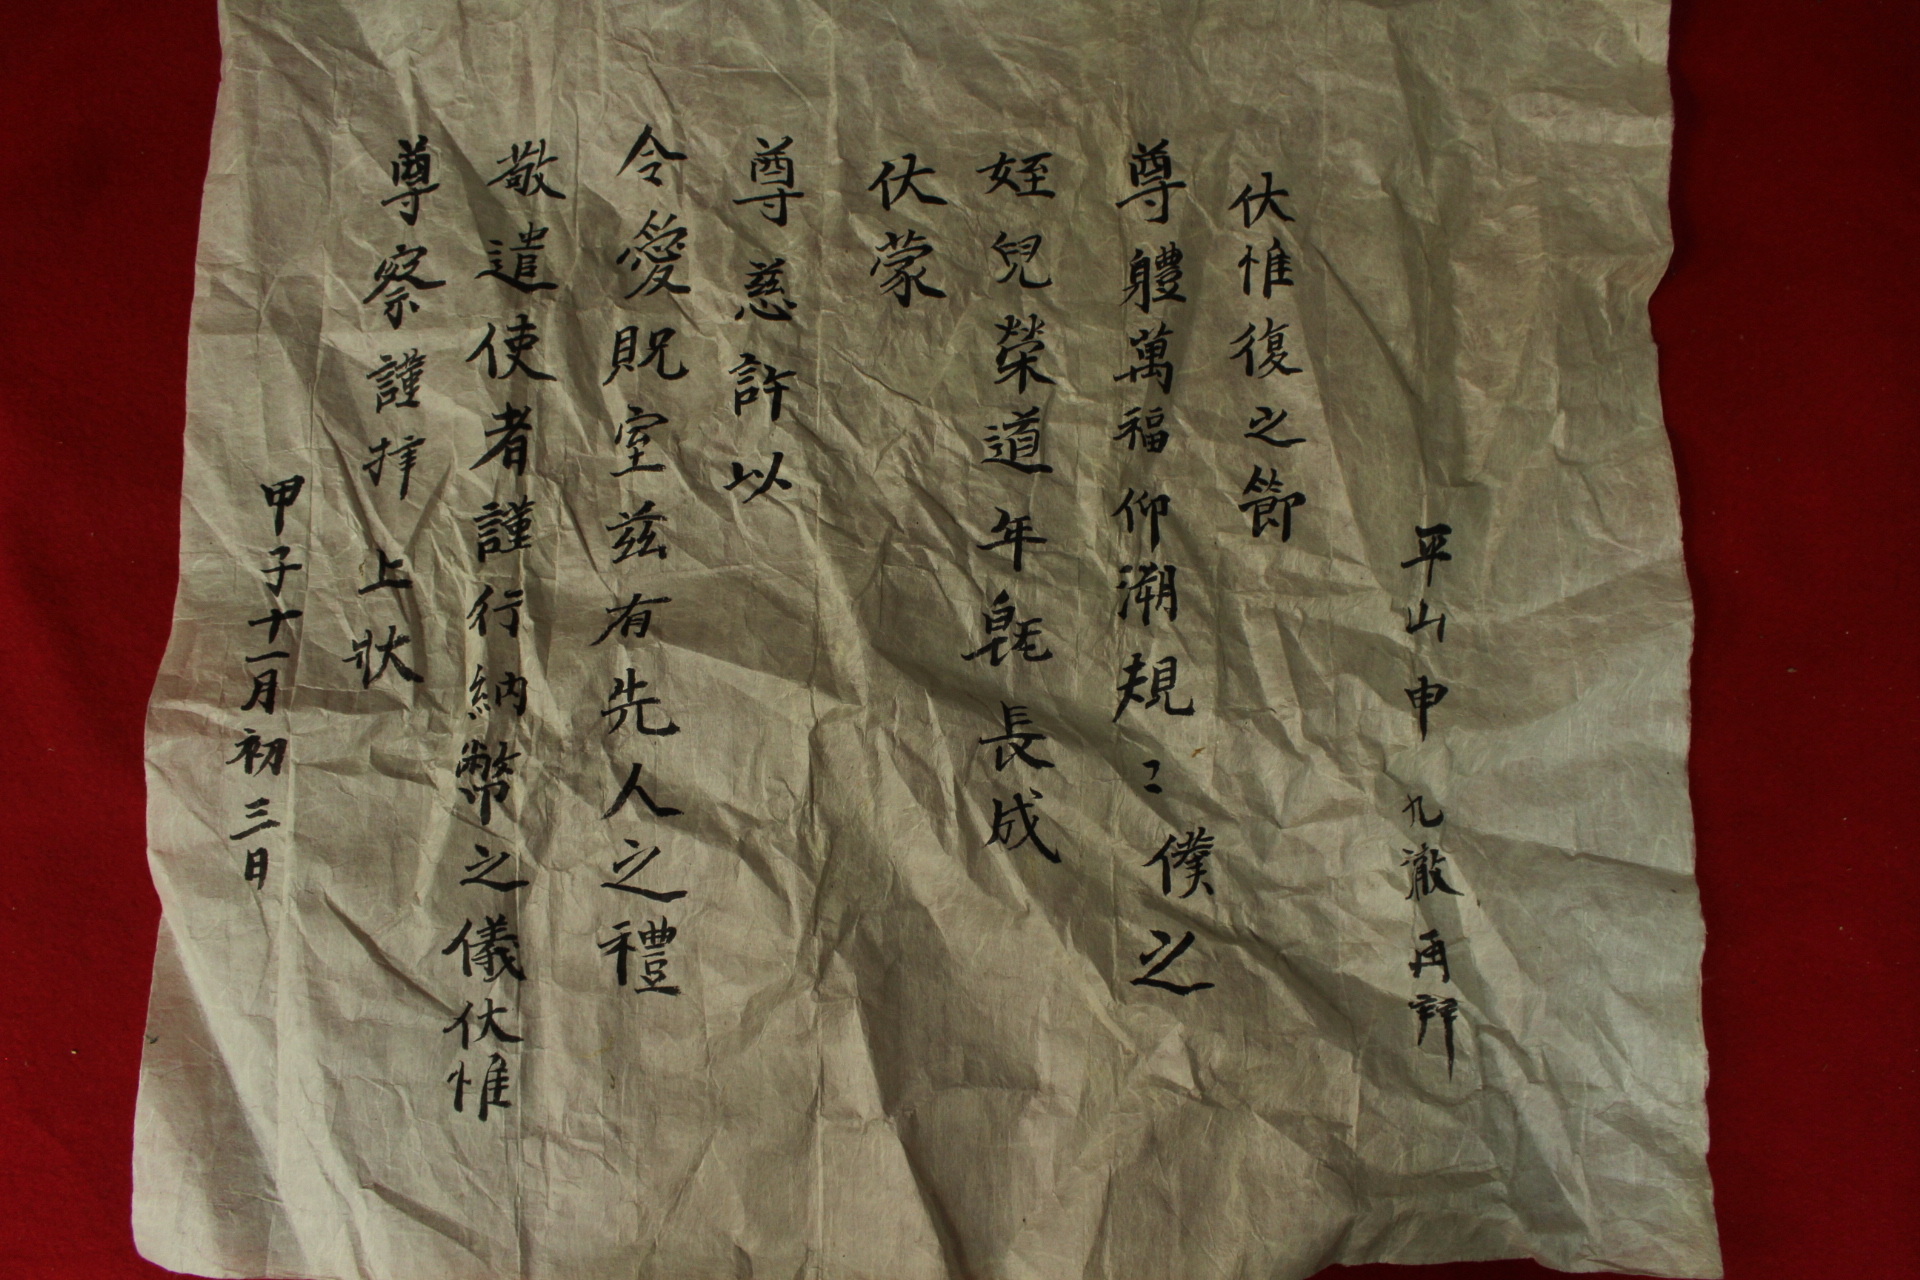 平山申九澈再拜
伏惟復之節
尊軆萬福仰溯規〻僕之
姪兒榮道年旣長成
伏蒙
尊慈許以
令愛貺室玆有先人之禮
敬遣使者謹行納幣之儀伏惟
尊察謹拜上狀
甲子十一月初三日